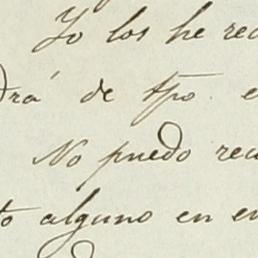 Yo los he rec
drá de tpo. e
No puedo rec
to alguno en e